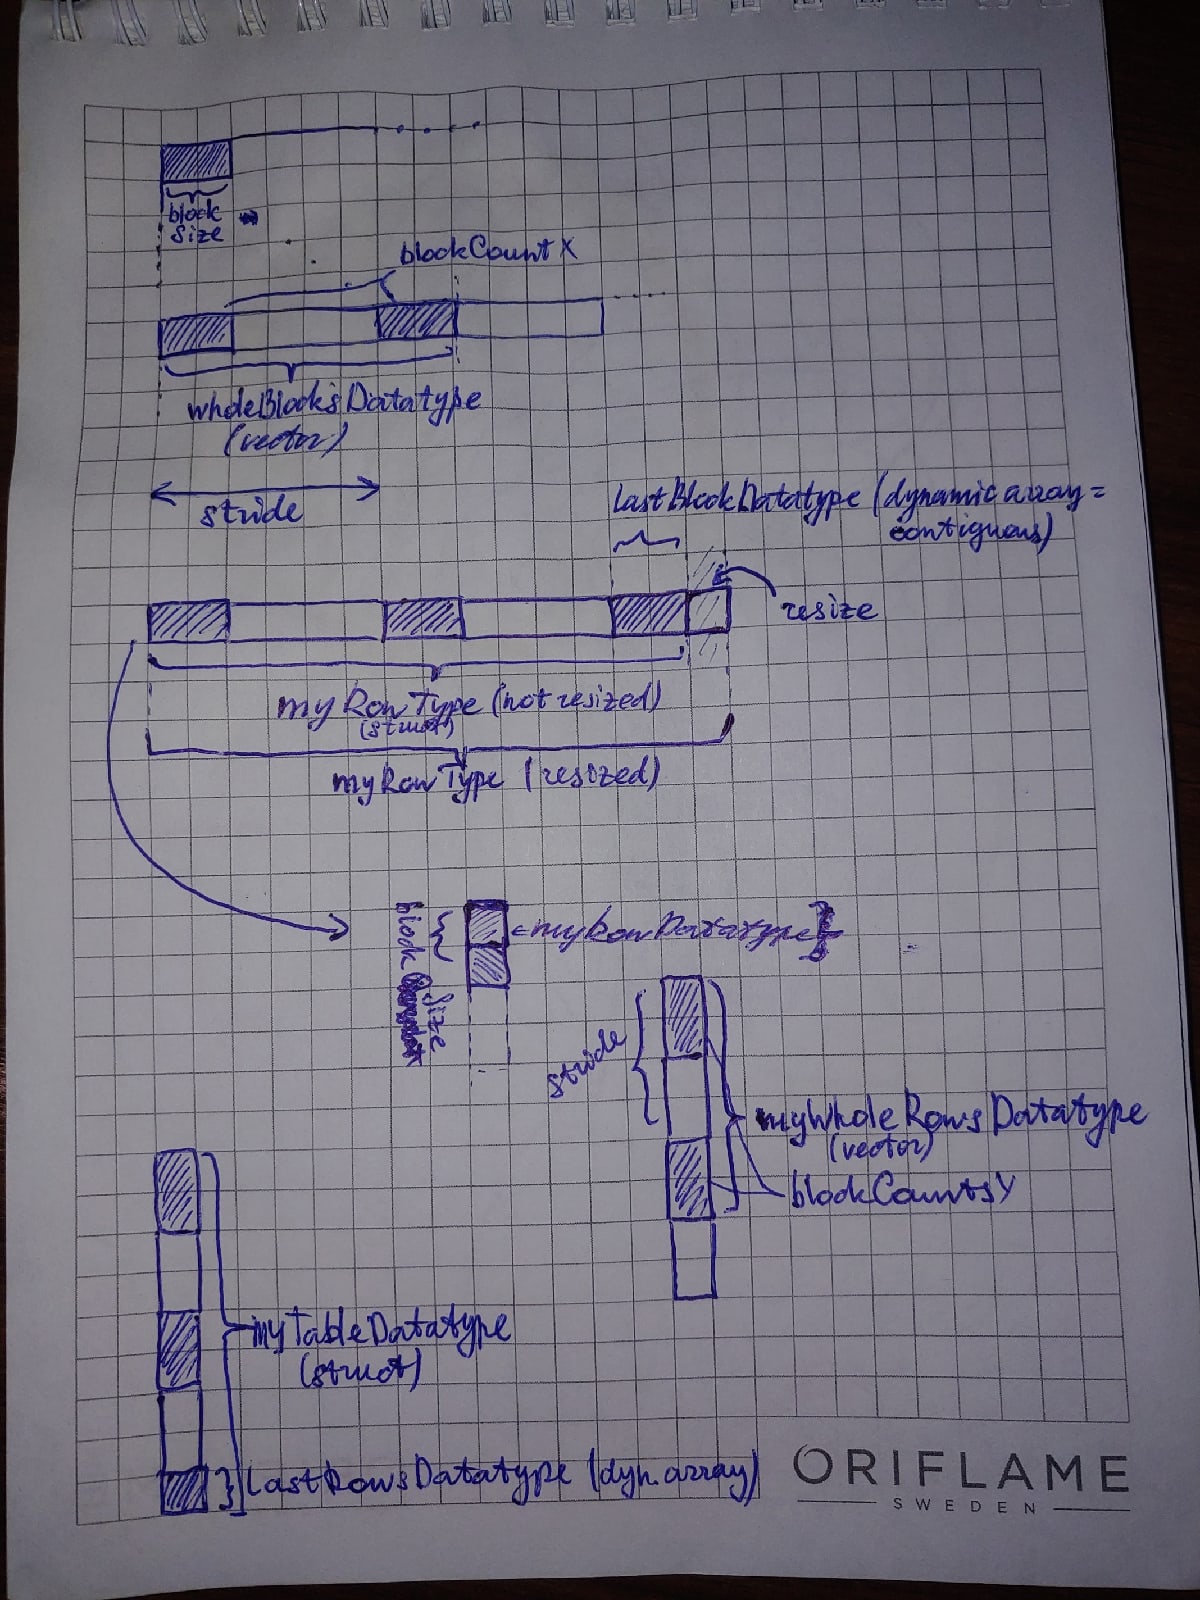 block
size
blockCount X
wholeBlocksDatatype
(vector)
stride
lastBlockDatatype (dynamic array =
contiguous)
resize
myRowType (not resized)
(struct)
myRowType (resized)
block
size
myRowDatatype
stride
myWholeRowsDatatype
(vector)
blockCountsY
myTableDatatype
(struct)
LastRowsDatatype (dyn.array)
ORIFLAME
SWEDEN